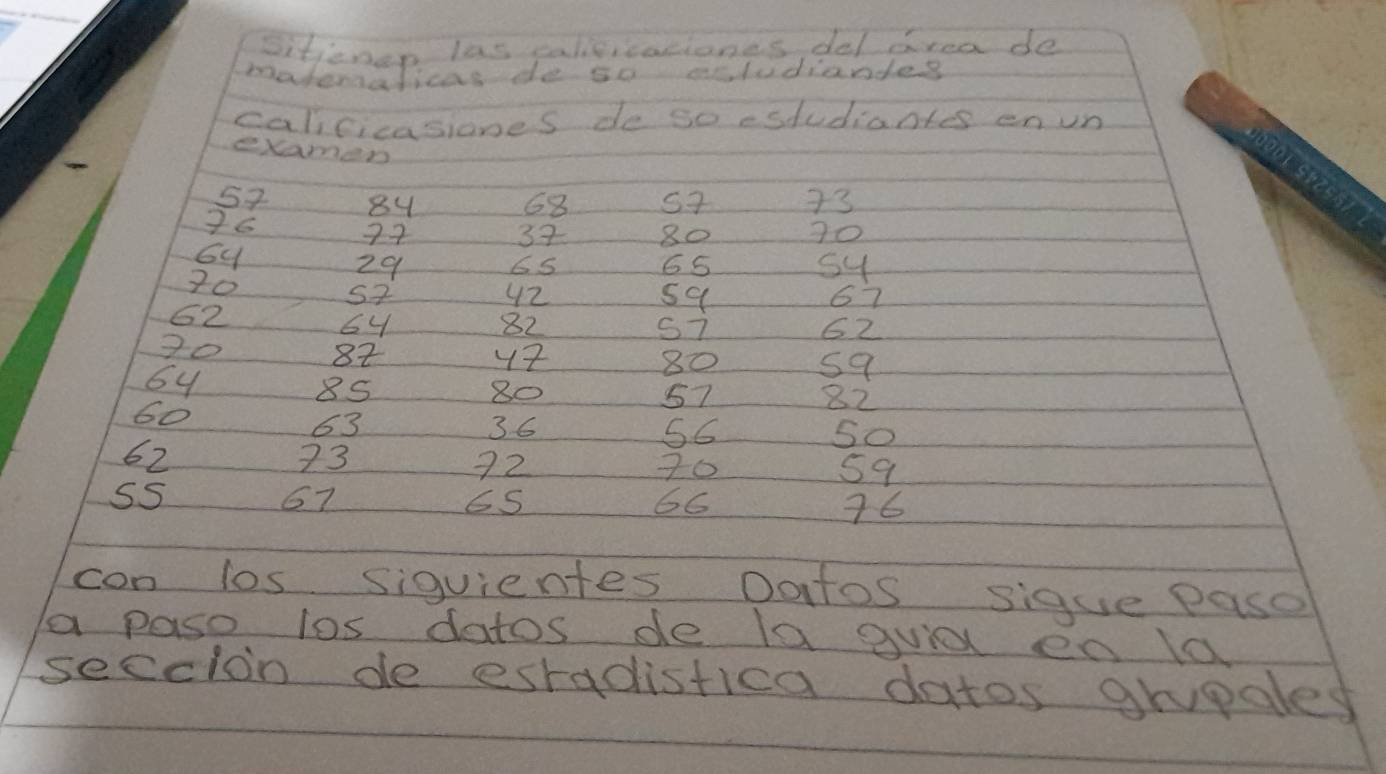 sitienen las calificaciones del área de
matematicas de 50 estudiantes
calificasiones de 50 estudiantes en un
examen
57 84 68 57 73
76 77 37 80 70
64 29 65 65 54
70 57 42 59 67
62 64 82 57 62
70 87 47 80 59
64 85 80 57 82
60 63 36 56 50
62 73 72 70 59
55 67 65 66 76
con los siguientes Datos sigue paso
a paso los datos de la guia en la
sección de estadistica datos grupales